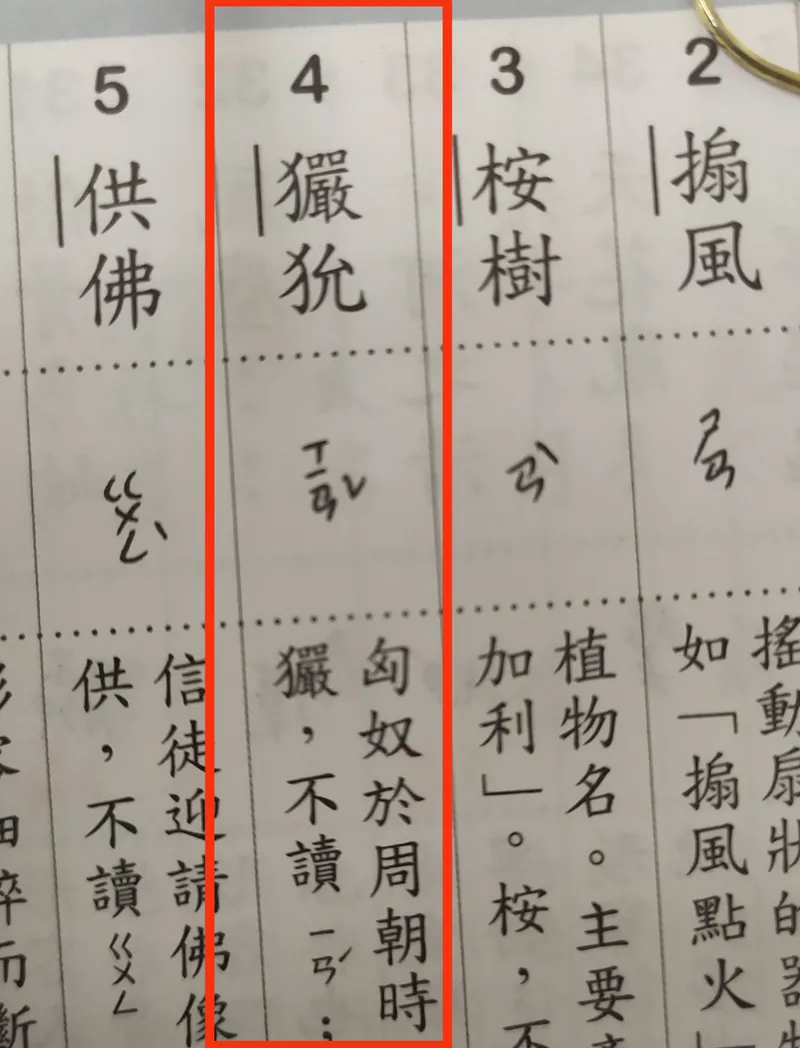 2
搧風
ㄕㄢ
搖動扇狀的器
如「搧風點火」
3
桉樹
ㄢˋ
植物名。主要產
加利」。桉，不
4
玁狁
ㄒㄧㄢˇ
匈奴於周朝時
玁，不讀ㄧㄢˊ；
5
供佛
ㄍㄨㄥˋ
信徒迎請佛像
供，不讀ㄍㄨㄥ